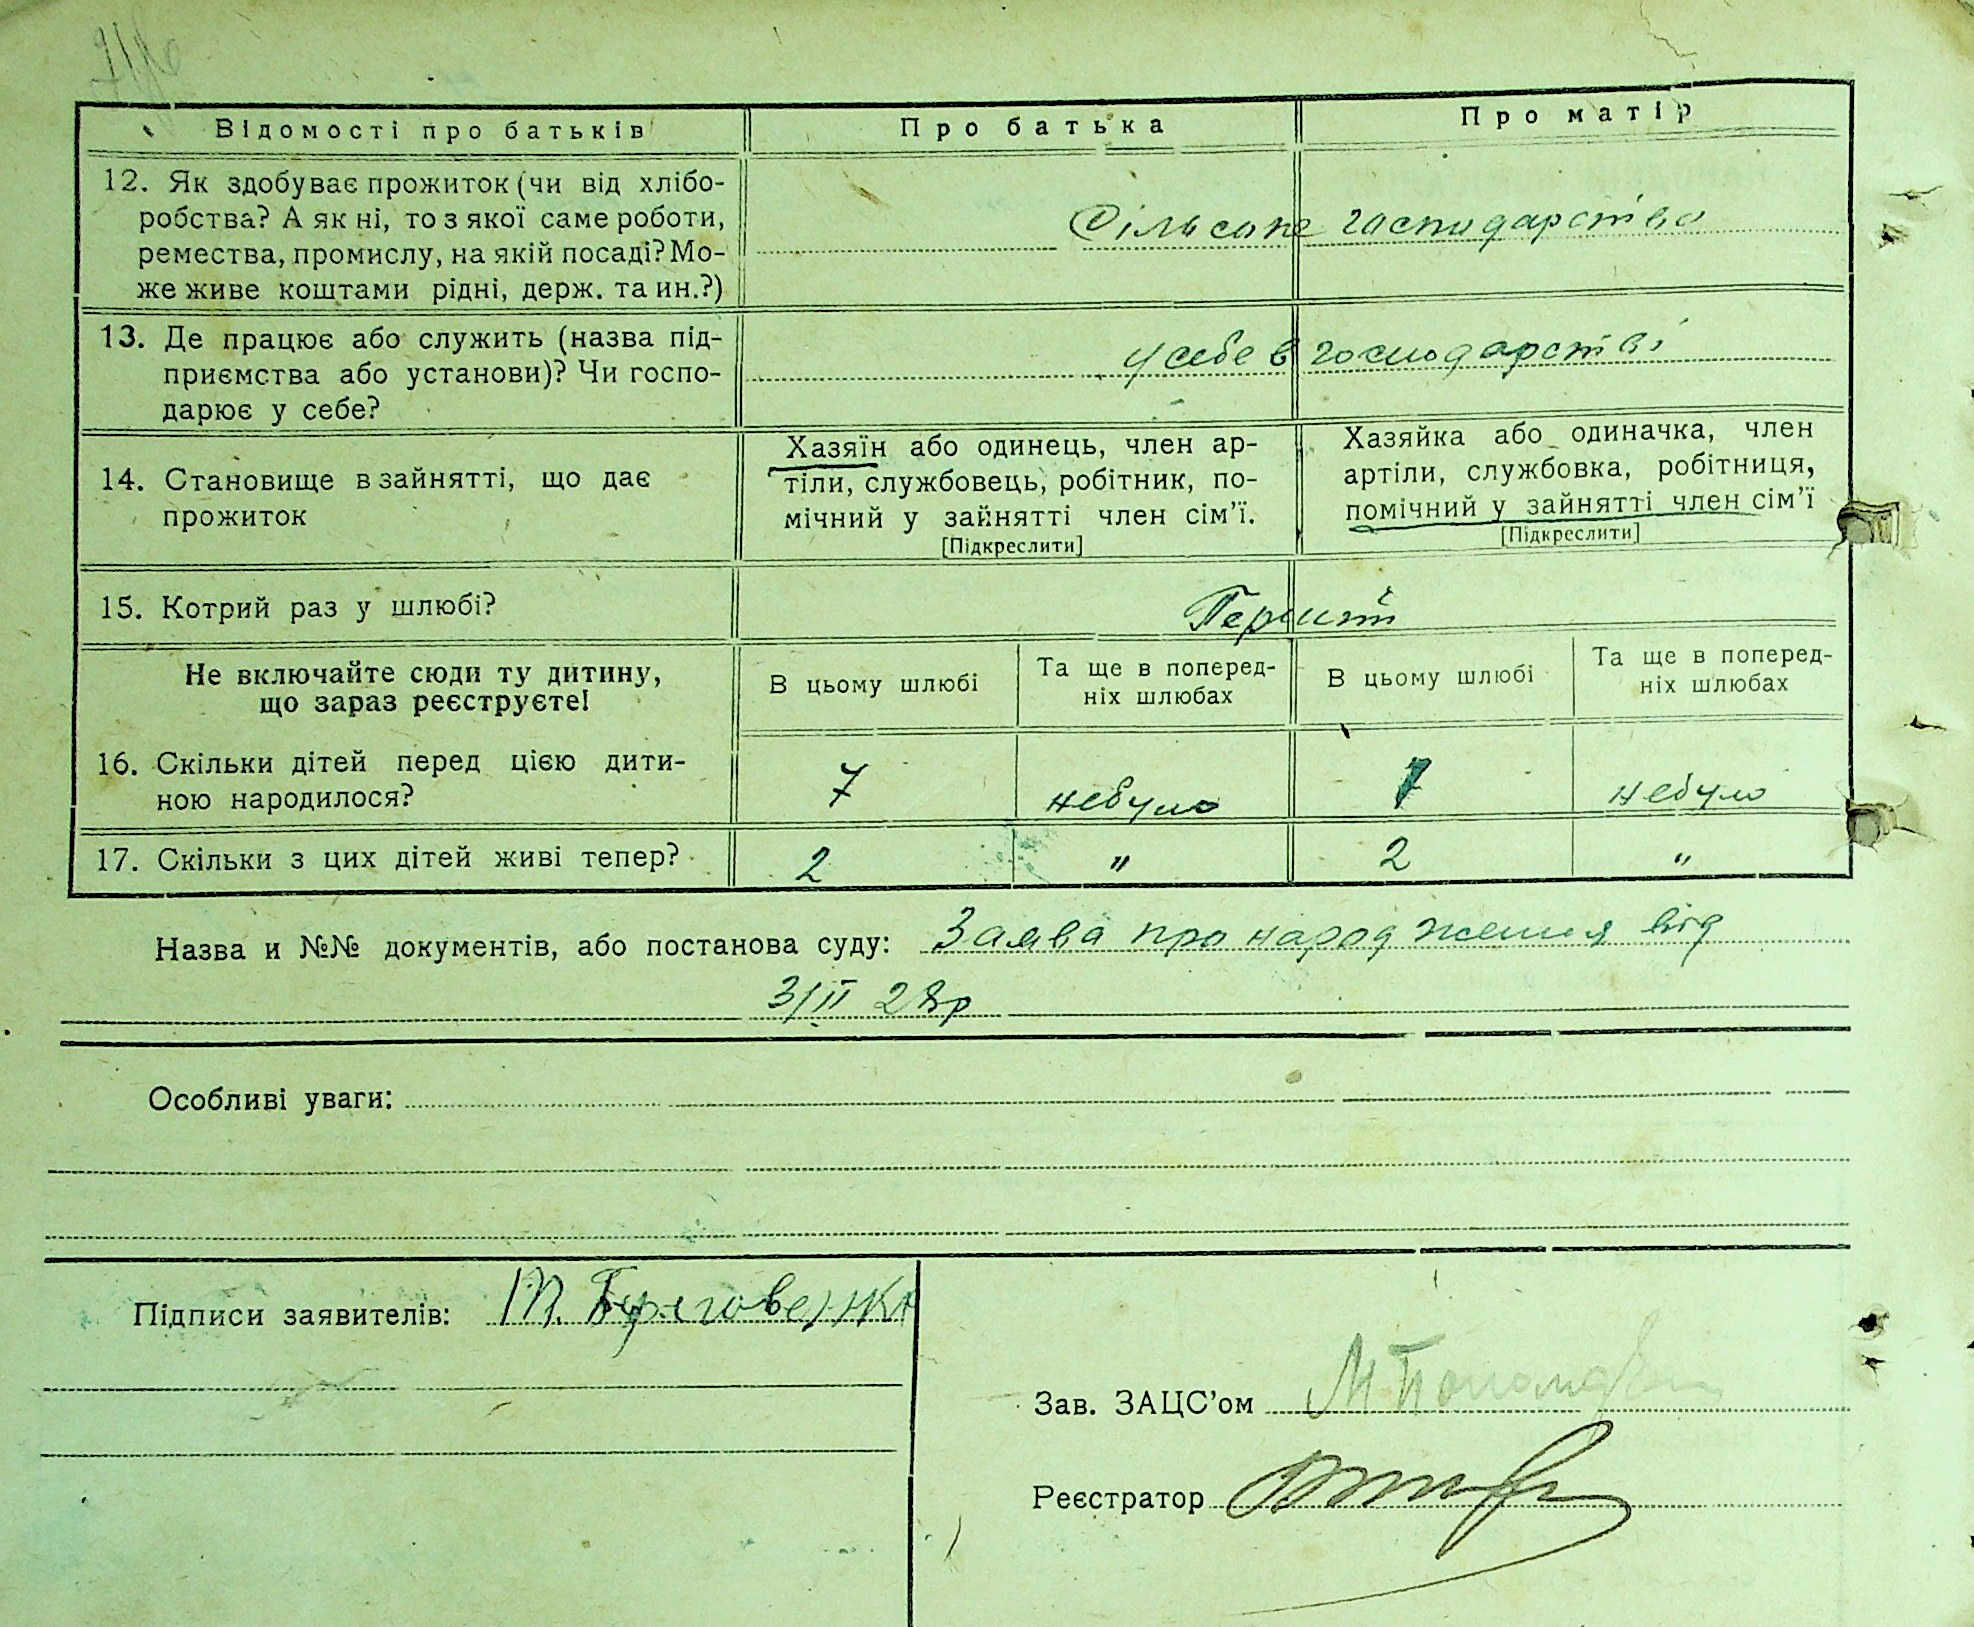 Відомості про батьків Про батька Про матір
12. Як здобуває прожиток (чи від хлібо-
робства? А як ні, то з якої саме роботи,
ремества, промислу, на якій посаді? Мо-
же живе коштами рідні, держ. та ин.?)
Сільське господарство
13. Де працює або служить (назва під-
приємства або установи)? Чи госпо-
дарює у себе?
у себе в господарстві
14. Становище в зайнятті, що дає
прожиток
Хазяїн або одинець, член ар-
тіли, службовець, робітник, по-
мічний у зайнятті член сім'ї.
[Підкреслити]
Хазяйка або одиначка, член
артіли, службовка, робітниця,
помічний у зайнятті член сім'ї
[Підкреслити]
15. Котрий раз у шлюбі?
Не включайте сюди ту дитину,
що зараз реєструєте!
В цьому шлюбі
Та ще в поперед-
ніх шлюбах
В цьому шлюбі
Та ще в поперед-
ніх шлюбах
16. Скільки дітей перед цією дити-
ною народилося?
7 небуло 7 небуло
17. Скільки з цих дітей живі тепер? 2 " 2 "
Назва и №№ документів, або постанова суду: Заява про народження від
3/II 28р
Особливі уваги:
Підписи заявителів:
Зав. ЗАЦС'ом
Реєстратор